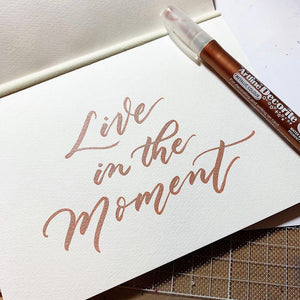 Live
in the
Moment
Artline Decorite